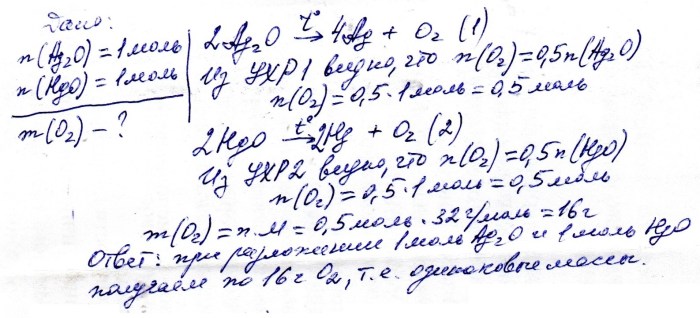 Дано:
n(Ag₂O)=1моль
n(HgO)=1моль
m(O₂)-?
2Ag₂O t°→ 4Ag + O₂ (1)
Из УХР1 видно, что n(O₂)=0,5n(Ag₂O)
n(O₂)=0,5·1моль=0,5моль
2HgO t°→ 2Hg + O₂ (2)
Из УХР2 видно, что n(O₂)=0,5n(HgO)
n(O₂)=0,5·1моль=0,5моль
m(O₂)=n·M=0,5моль·32г/моль=16г
Ответ: при разложении 1моль Ag₂O и 1моль HgO
получаем по 16г O₂, т.е. одинаковые массы.